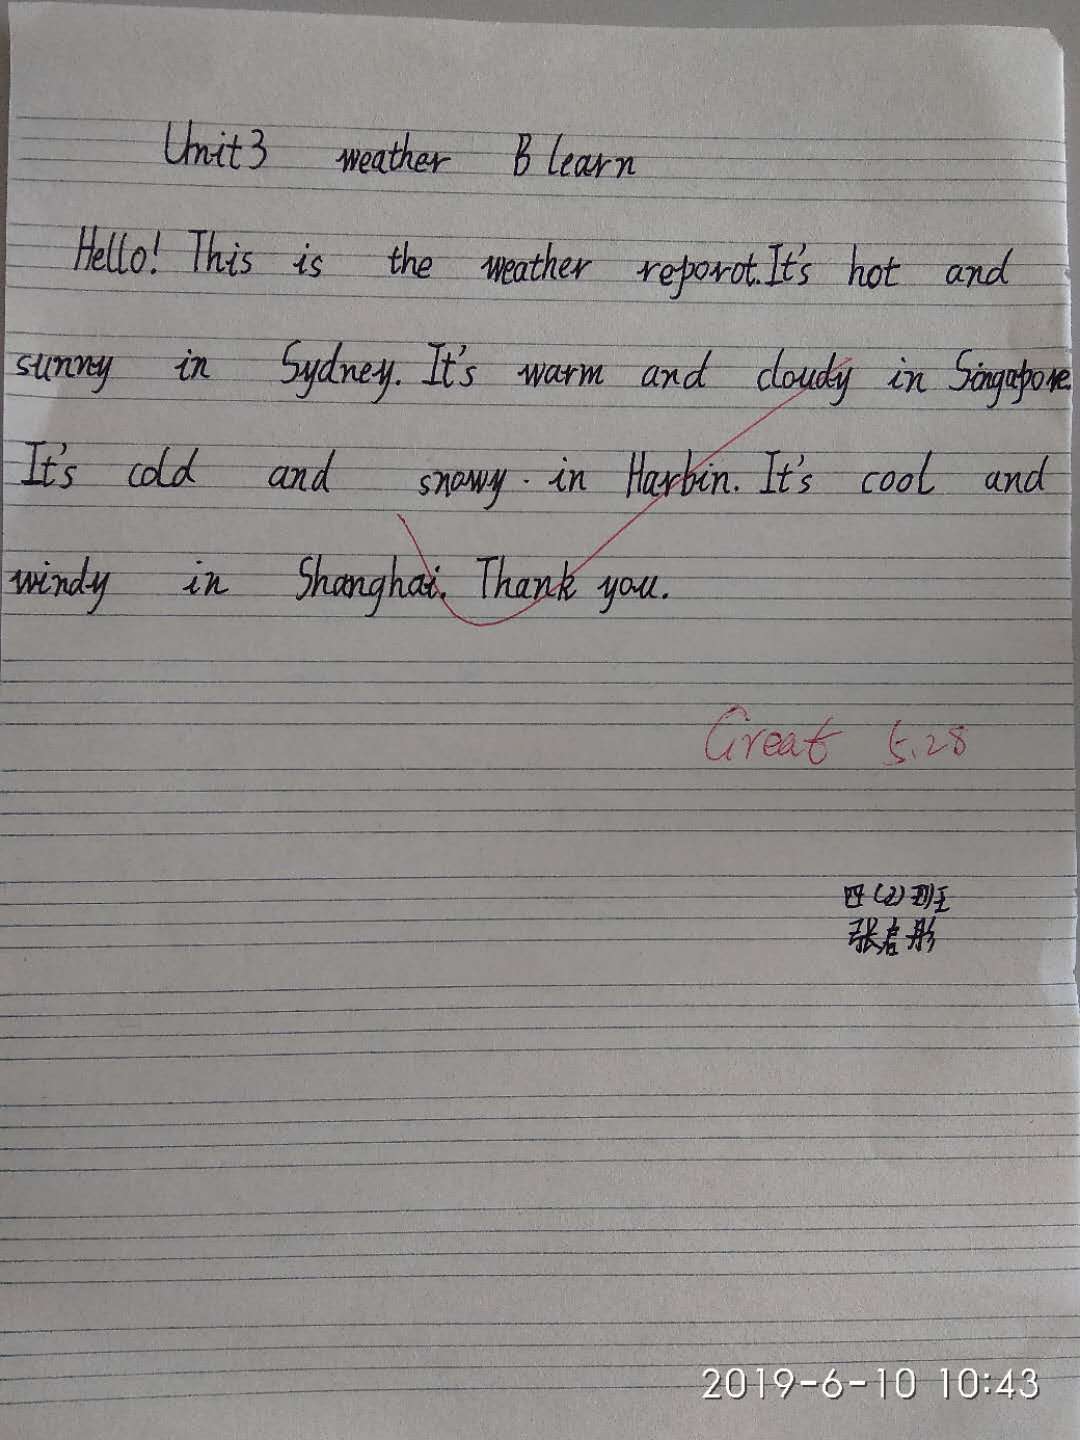 Unit3 weather B learn
Hello! This is the weather reporot. It's hot and
sunny in Sydney. It's warm and cloudy in Singapore.
It's cold and snowy. in Harbin. It's cool and
windy in Shanghai. Thank you.
Great 5.28
四(2)班
张启彤
2019-6-10 10:43